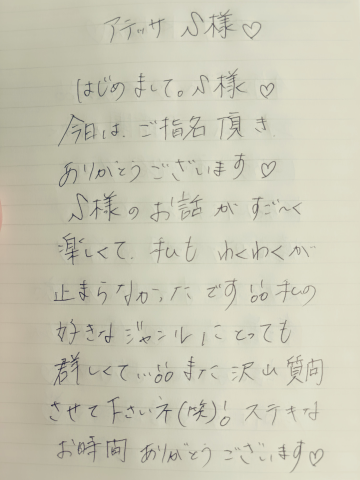 アテッサ S様♡
はじめまして。S様♡
今日は、ご指名頂き
ありがとうございます♡
S様のお話がすご〜く
楽しくて、私もわくわくが
止まらなかったです!!私の
好きなジャンルにとっても
群しくて...!!また沢山質問
させて下さいネ(笑)!ステキな
お時間ありがとうございます♡